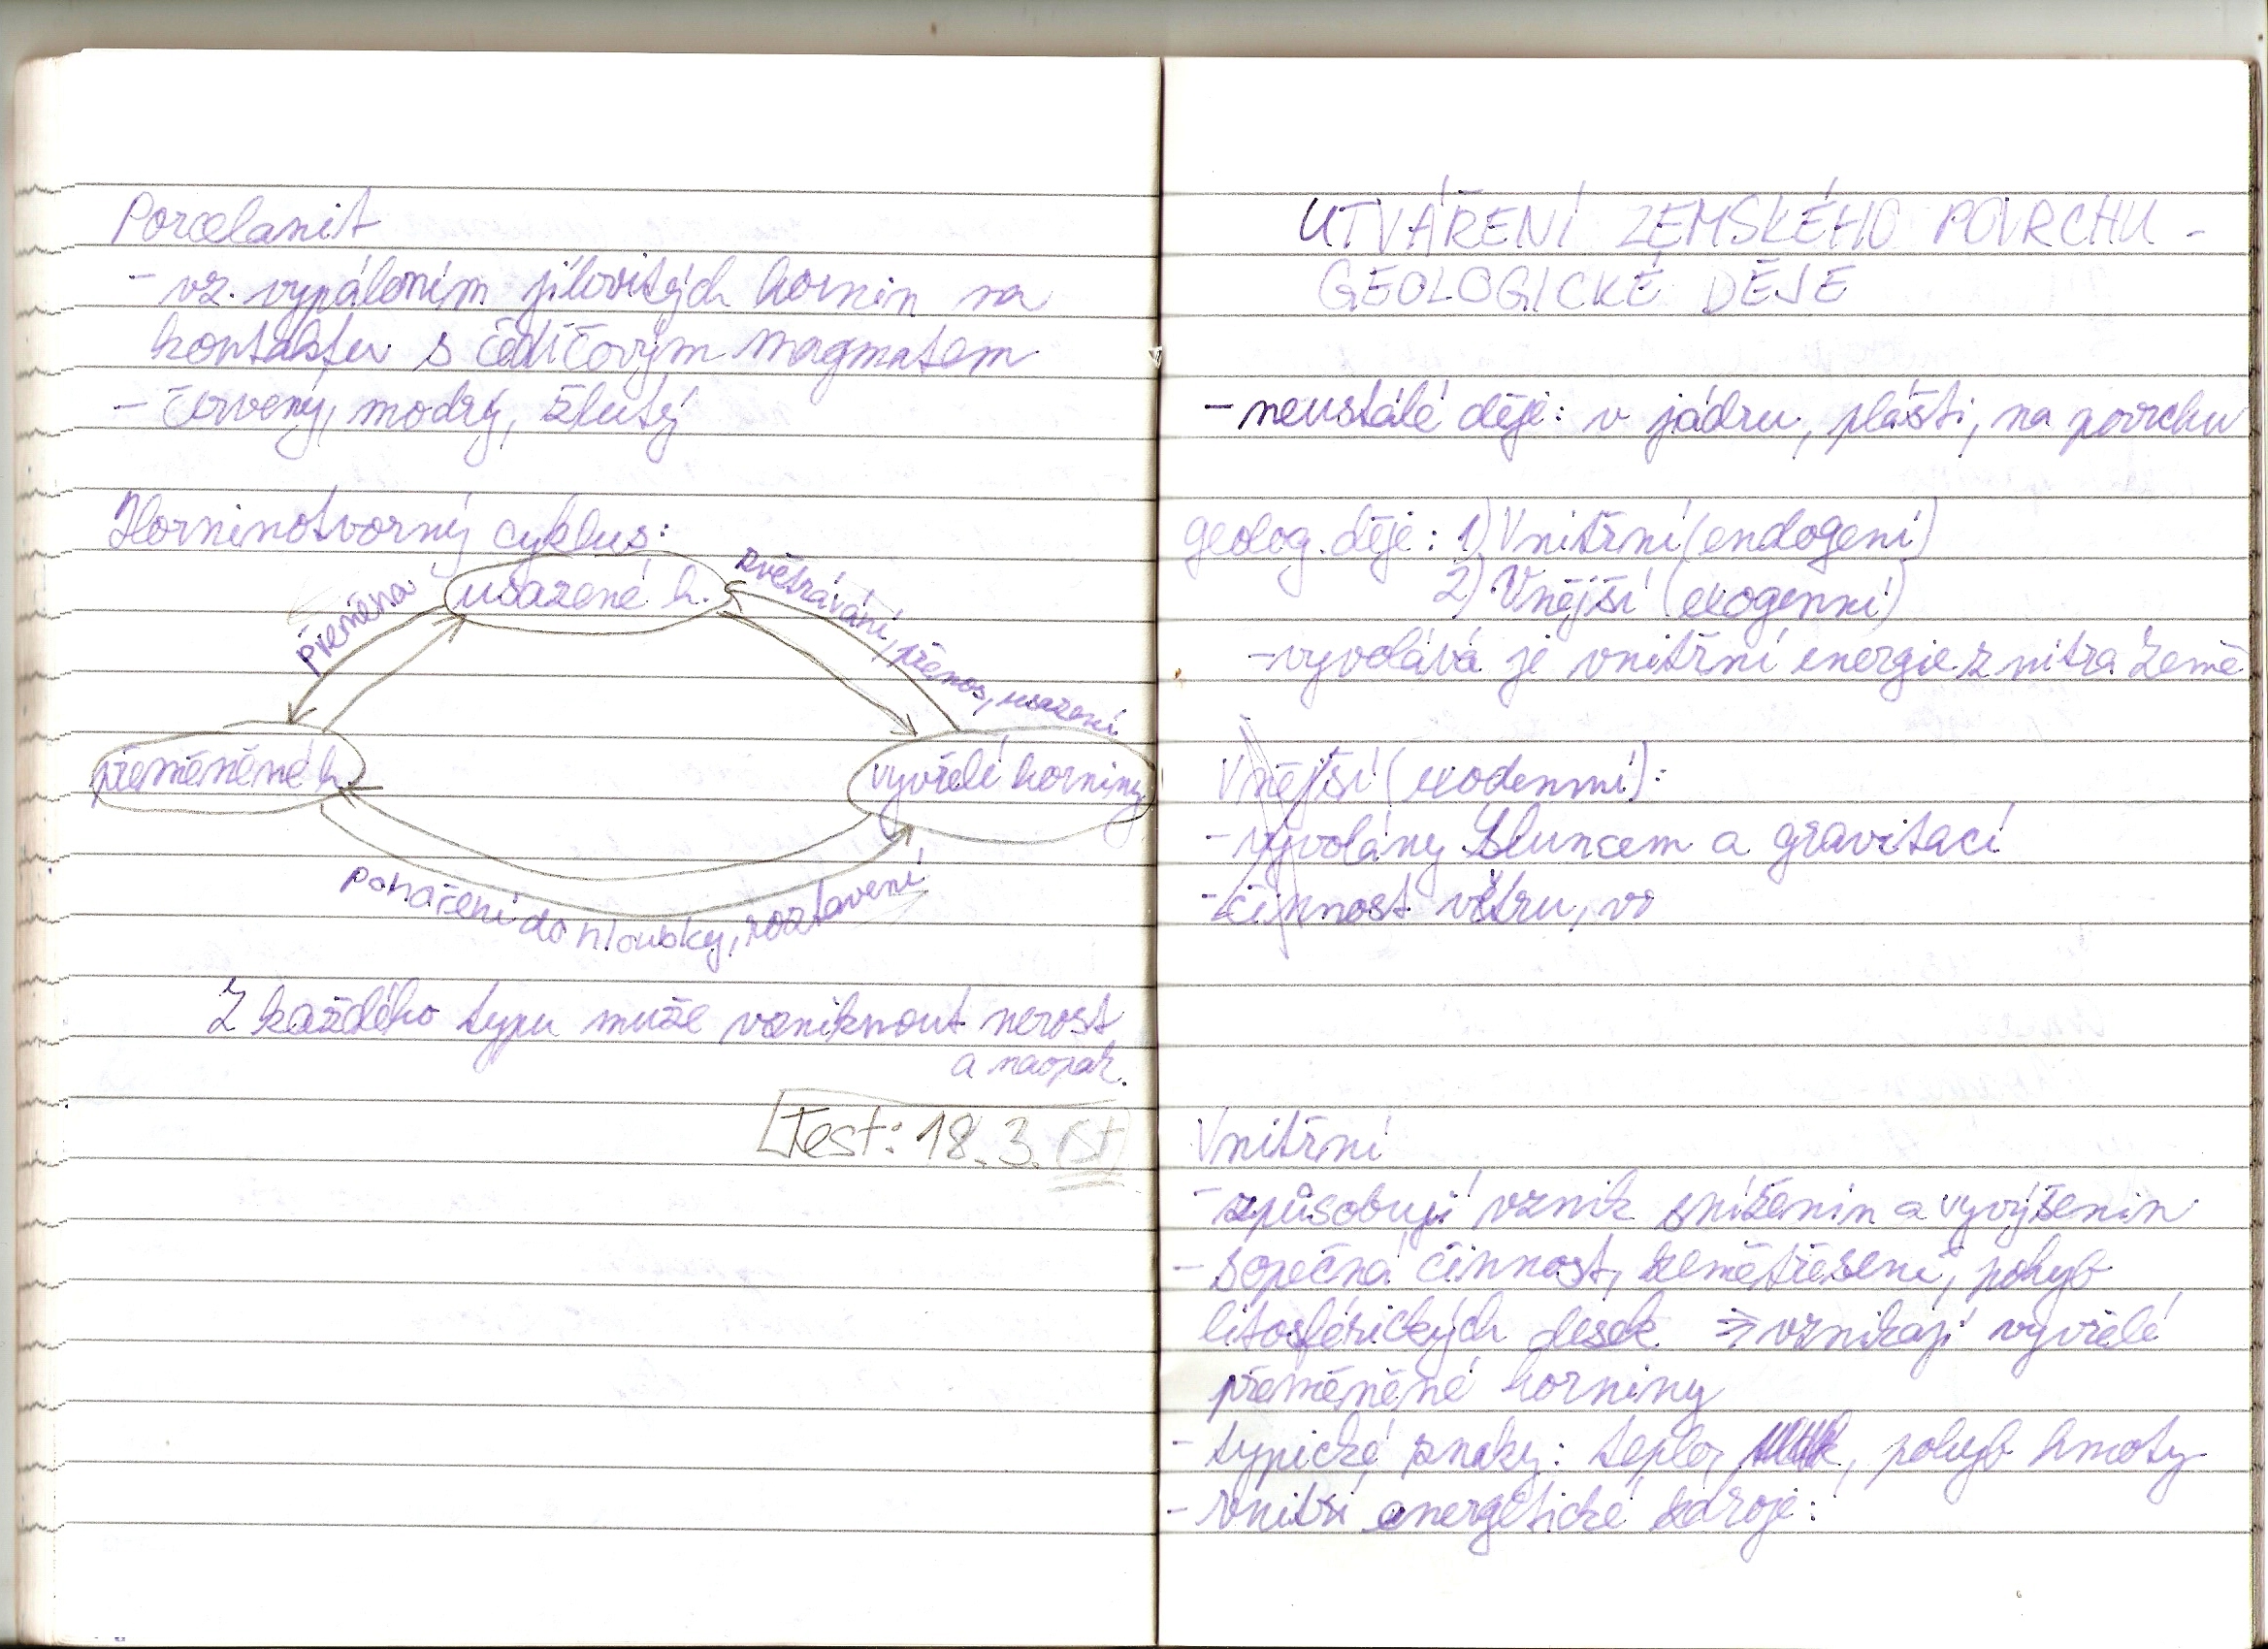 Porcelanit
- vz. vypálením jílovitých hornin na
kontaktu s čedičovým magmatem
- červený, modrý, žlutý
Horninotvorný cyklus:
usazené h.
přeměna
zvětrávání, přenos, usazení
přeměněné h.
vyvřelé horniny
ponoření do hloubky, roztavení
Z každého typu může vzniknout nerost
a naopak.
Test: 18.3. (St)
UTVÁŘENÍ ZEMSKÉHO POVRCHU -
GEOLOGICKÉ DĚJE
- neustálé děje: v jádru, plášti, na povrchu
geolog. děje: 1) Vnitřní (endogení)
2) Vnější (exogenní)
- vyvolává je vnitřní energie z nitra Země
Vnější (exodenní):
- vyvolány Sluncem a gravitací
- činnost větru, vo
Vnitřní
- způsobují vznik sníženin a vyvýšenin
- sopečná činnost, zemětřesení, pohyb
litosférických desek ⇒ vznikají vyvřelé
přeměněné horniny
- typické znaky: teplo, pohyb hmoty
- vnitři energetické zdroje: